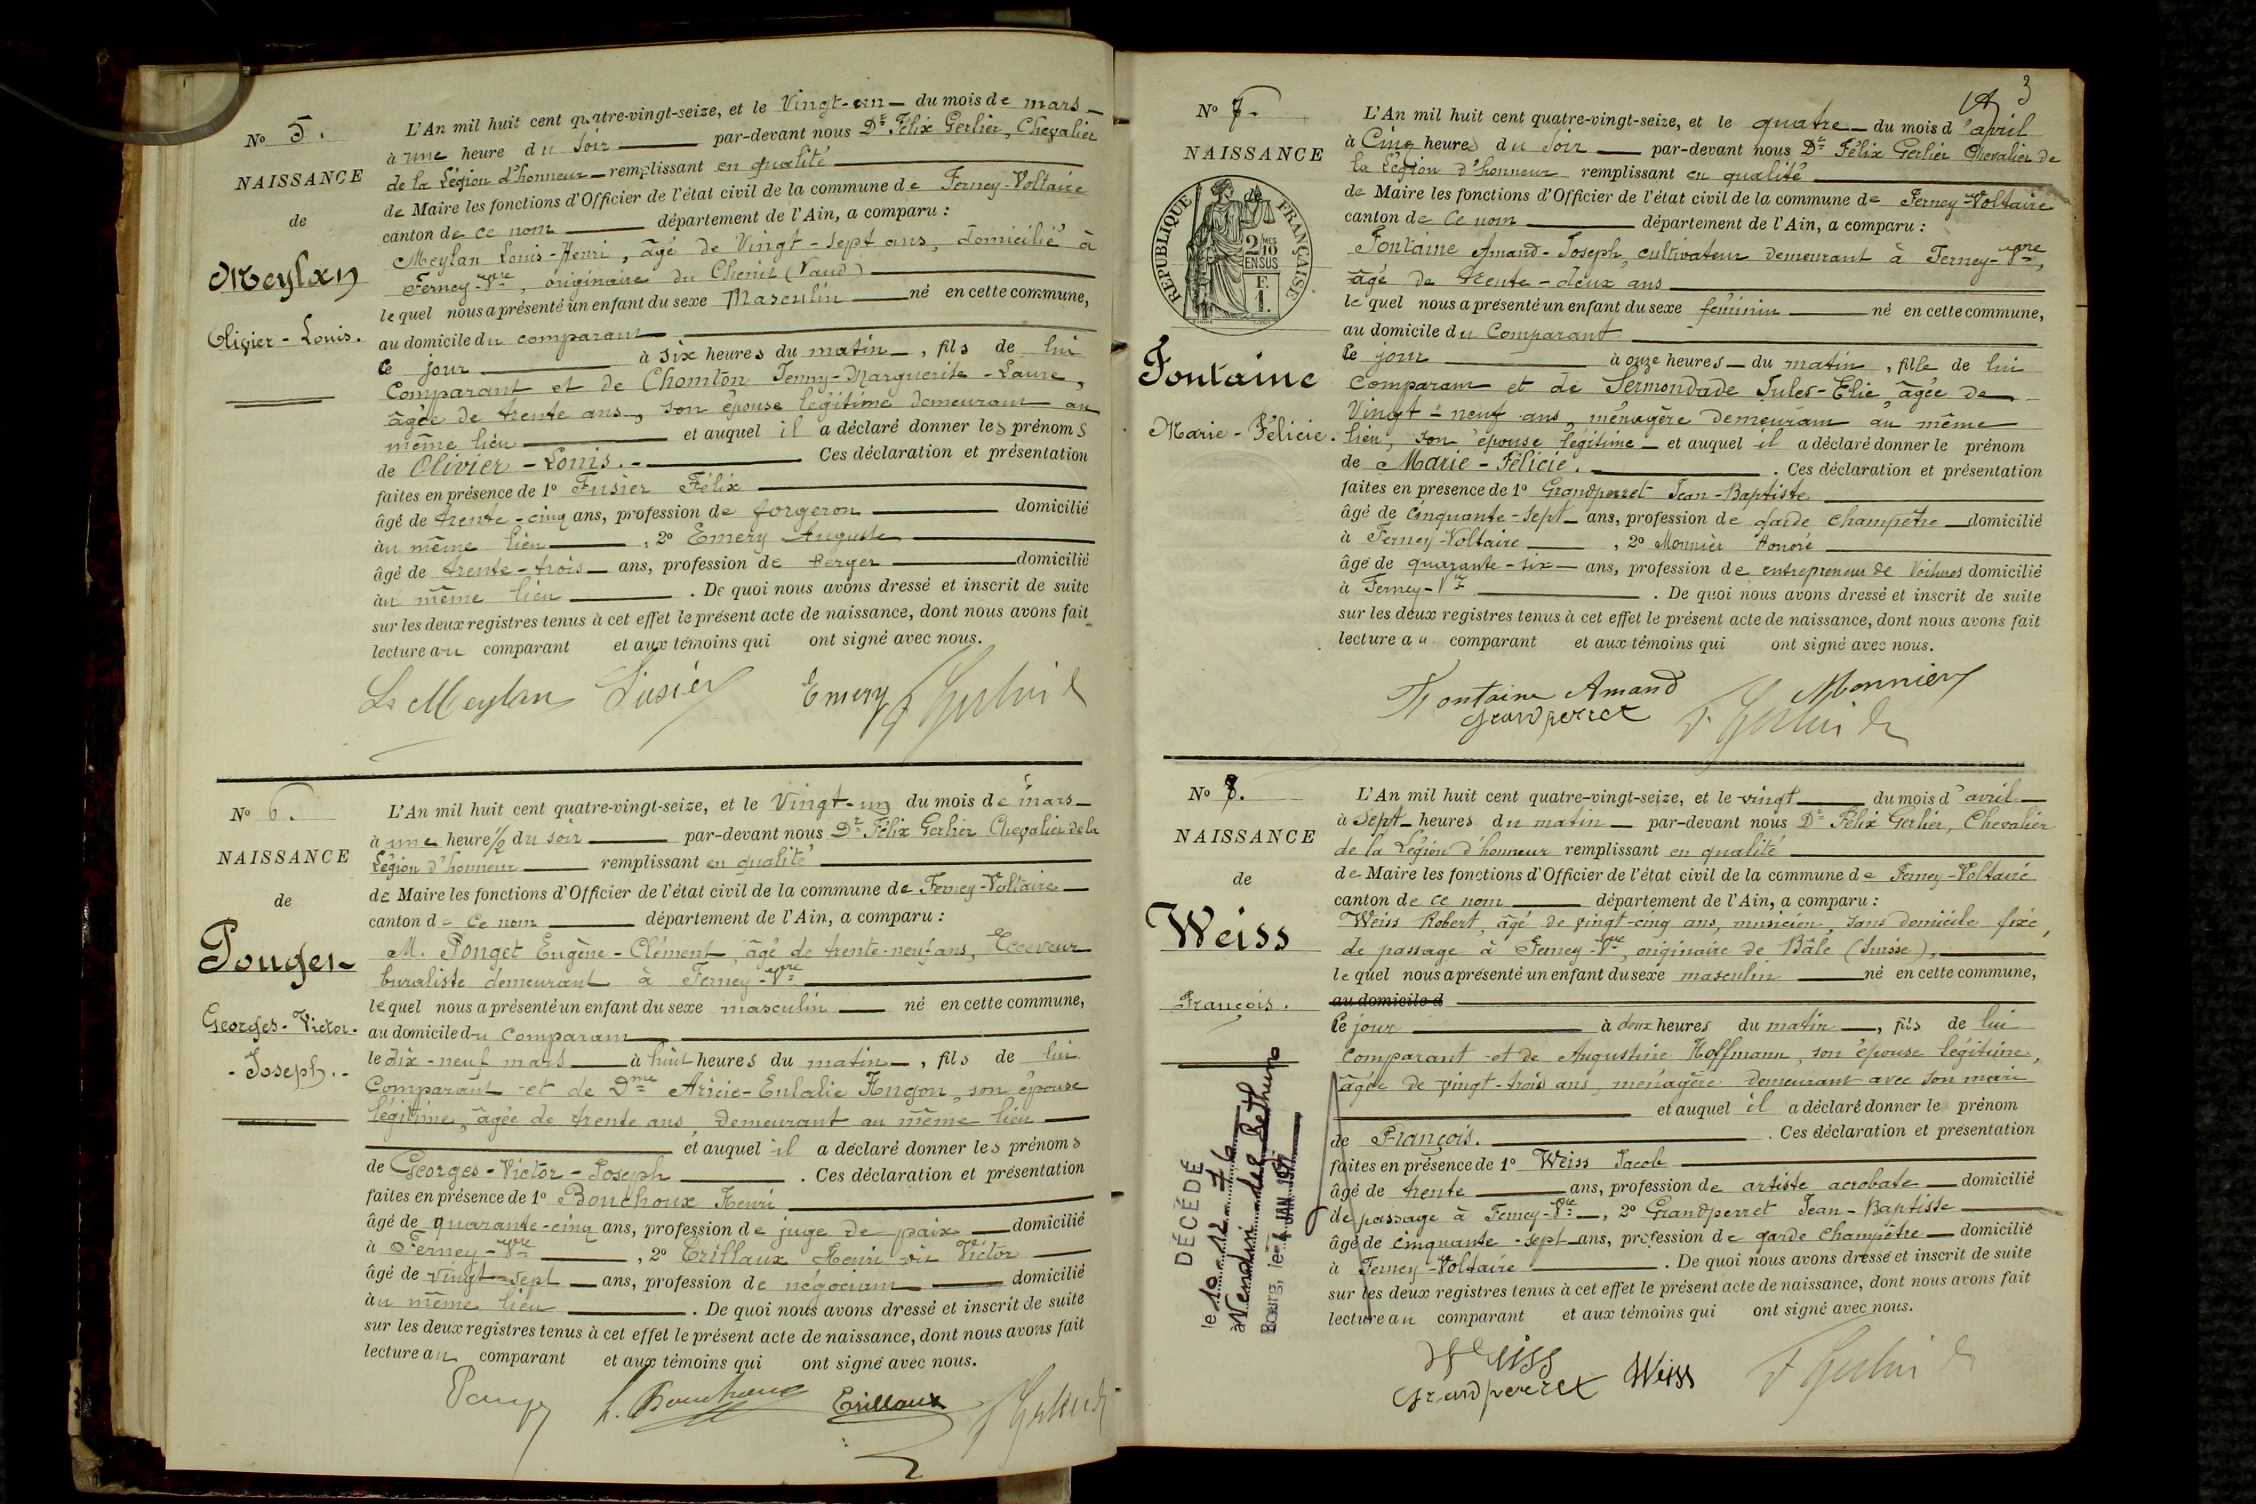 No 5.
NAISSANCE
de
Meylan
Olivier - Louis.
L'An mil huit cent quatre-vingt-seize, et le Vingt-un du mois de mars
à une heure du soir par-devant nous Dr. Félix Gerlier, Chevalier
de la Légion d'honneur remplissant en qualité
de Maire les fonctions d'Officier de l'état civil de la commune de Ferney-Voltaire
canton de ce nom département de l'Ain, a comparu :
Meylan Louis-Henri, âgé de Vingt-sept ans, domicilié à
Ferney-Vre, originaire du Chenit (Vaud)
lequel nous a présenté un enfant du sexe Masculin né en cette commune,
au domicile du comparant
ce jour à six heures du matin, fils de lui
Comparant et de Chomton Jenny-Marguerite-Laure,
âgée de trente ans, son épouse légitime demeurant au
même lieu et auquel il a déclaré donner les prénoms
de Olivier-Louis. Ces déclaration et présentation
faites en présence de 1º Fusier Félix
âgé de trente-cinq ans, profession de forgeron domicilié
au même lieu, 2º Emery Auguste
âgé de trente-trois ans, profession de berger domicilié
au même lieu. De quoi nous avons dressé et inscrit de suite
sur les deux registres tenus à cet effet le présent acte de naissance, dont nous avons fait
lecture au comparant et aux témoins qui ont signé avec nous.
Ls Meylan Fusier Emery F Gerlier
No 6.
NAISSANCE
de
Pouget
Georges-Victor-
-Joseph.-
L'An mil huit cent quatre-vingt-seize, et le Vingt-un du mois de mars
à une heure 1/2 du soir par-devant nous Dr. Félix Gerlier Chevalier de la
Légion d'honneur remplissant en qualité
de Maire les fonctions d'Officier de l'état civil de la commune de Ferney-Voltaire
canton de ce nom département de l'Ain, a comparu :
M. Pouget Eugène-Clément, âgé de trente-neuf ans, Receveur
buraliste demeurant à Ferney-Vre
lequel nous a présenté un enfant du sexe masculin né en cette commune,
au domicile du comparant
le dix-neuf mars à huit heures du matin, fils de lui
Comparant et de Dme Aricie-Eulalie Hugon, son épouse
légitime, âgée de trente ans, demeurant au même lieu
et auquel il a déclaré donner les prénoms
de Georges-Victor-Joseph. Ces déclaration et présentation
faites en présence de 1º Bouchoux Henri
âgé de quarante-cinq ans, profession de juge de paix domicilié
à Ferney-Vre, 2º Trillaux Henri dit Victor
âgé de vingt-sept ans, profession de négociant domicilié
au même lieu. De quoi nous avons dressé et inscrit de suite
sur les deux registres tenus à cet effet le présent acte de naissance, dont nous avons fait
lecture au comparant et aux témoins qui ont signé avec nous.
Pouget h. Bouchoux Trillaux F Gerlier
3
No 7.
NAISSANCE
de
RÉPUBLIQUE FRANÇAISE
2/10 EN SUS
F. 1.
Fontaine
Marie-Félicie.
L'An mil huit cent quatre-vingt-seize, et le quatre du mois d'avril
à Cinq heures du soir par-devant nous Dr. Félix Gerlier Chevalier de
la Légion d'honneur remplissant en qualité
de Maire les fonctions d'Officier de l'état civil de la commune de Ferney-Voltaire
canton de ce nom département de l'Ain, a comparu :
Fontaine Amand-Joseph, cultivateur demeurant à Ferney-Vre,
âgé de trente-deux ans
lequel nous a présenté un enfant du sexe féminin né en cette commune,
au domicile du Comparant
ce jour à onze heures du matin, fille de lui
Comparant et de Sermondade Jules-Elie, âgée de
Vingt-neuf ans, ménagère demeurant au même
lieu, son épouse légitime et auquel il a déclaré donner le prénom
de Marie-Félicie. Ces déclaration et présentation
faites en présence de 1º Grandperret Jean-Baptiste
âgé de cinquante-sept ans, profession de garde champêtre domicilié
à Ferney-Voltaire, 2º Monnier Honoré
âgé de quarante-six ans, profession de entrepreneur de Voitures domicilié
à Ferney-Vre. De quoi nous avons dressé et inscrit de suite
sur les deux registres tenus à cet effet le présent acte de naissance, dont nous avons fait
lecture au comparant et aux témoins qui ont signé avec nous.
Fontaine Amand Monnier
Grandperret F. Gerlier
No 8.
NAISSANCE
de
Weiss
François.
DÉCÉDÉ
le 10-12-76
à Verdun les Béthune
Bourg, le 4 JAN. 1977
L'An mil huit cent quatre-vingt-seize, et le vingt du mois d'avril
à sept heures du matin par-devant nous Dr. Félix Gerlier, Chevalier
de la Légion d'honneur remplissant en qualité
de Maire les fonctions d'Officier de l'état civil de la commune de Ferney-Voltaire
canton de ce nom département de l'Ain, a comparu :
Weiss Robert, âgé de vingt-cinq ans, musicien, sans domicile fixe,
de passage à Ferney-Vre, originaire de Bâle (Suisse),
lequel nous a présenté un enfant du sexe masculin né en cette commune,
au domicile d
ce jour à deux heures du matin, fils de lui
comparant et de Augustine Hoffmann, son épouse légitime,
âgée de vingt-trois ans, ménagère demeurant avec son mari
et auquel il a déclaré donner le prénom
de François. Ces déclaration et présentation
faites en présence de 1º Weiss Jacob
âgé de trente ans, profession de artiste acrobate domicilié
de passage à Ferney-Vre, 2º Grandperret Jean-Baptiste
âgé de cinquante-sept ans, profession de garde champêtre domicilié
à Ferney-Voltaire. De quoi nous avons dressé et inscrit de suite
sur les deux registres tenus à cet effet le présent acte de naissance, dont nous avons fait
lecture au comparant et aux témoins qui ont signé avec nous.
Weiss
Grandperret Weiss F Gerlier